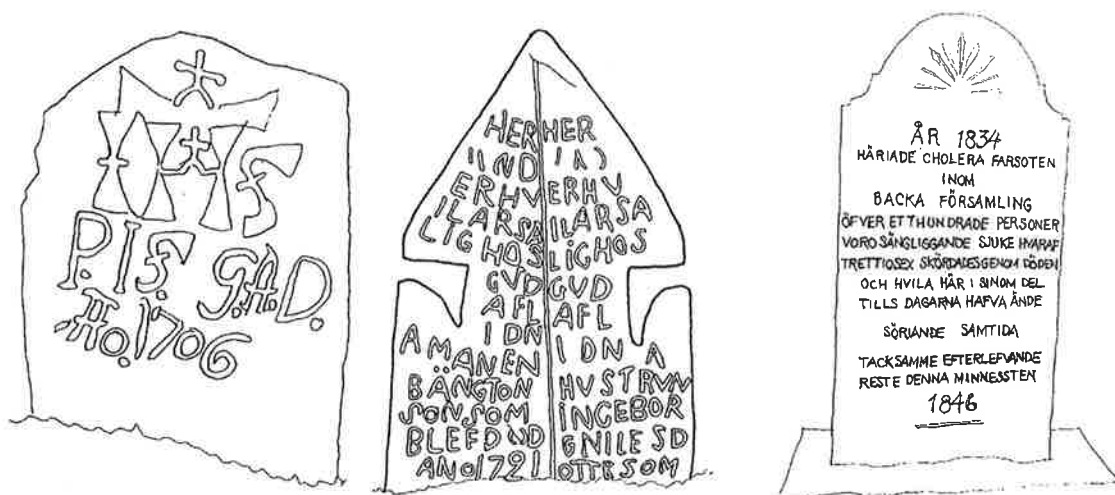 P.IS. G.A.D.
Ao.1706
HER
ERHV
ILARSÄ
LIGHOS
GVD
AFL
IDN
A MANEN
BÄNGTON
SON SOM
BLEF DÖD
ANO 1721
HER
ERHV
ILARSA
LIGHOS
GVD
AFL
IDNA
HUSTRVN
INGEBOR
GNILESD
OTTRSOM
ÅR 1834
HÄRIADE CHOLERA FARSOTEN
INOM
BACKA FÖRSAMLING
ÖFVER ETT HUNDRADE PERSONER
VORO SÄNGLIGGANDE SJUKE HVARAF
TRETTIOSEX SKÖRDADES GENOM DÖDEN
OCH HVILA HÄR I SINOM DEL
TILLS DAGARNA HAFVA ÄNDE
SÖRIANDE SAMTIDA
TACKSAMME EFTERLEFVANDE
RESTE DENNA MINNESSTEN
1846